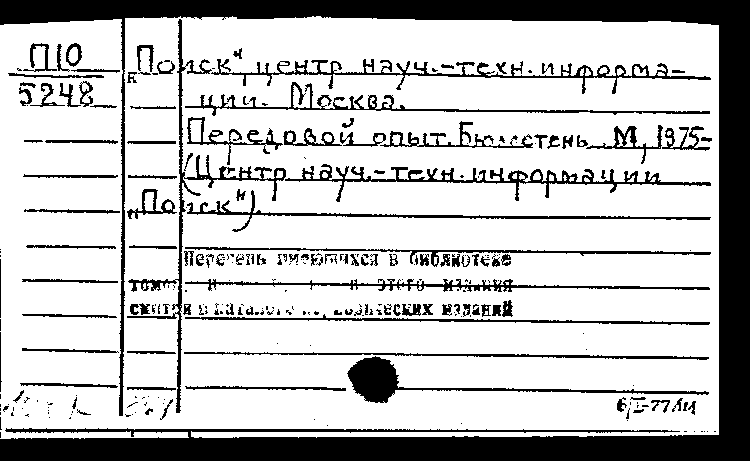 П10
5248
„Поиск", центр науч.-техн. информа-
ции. Москва.
Передовой опыт. Бюллетень. М, 1975-
(Центр науч.-техн. информации
„Поиск").
Перечень имеющихся в библиотеке
этого издания
смотри в каталоге изданий
6/I-77